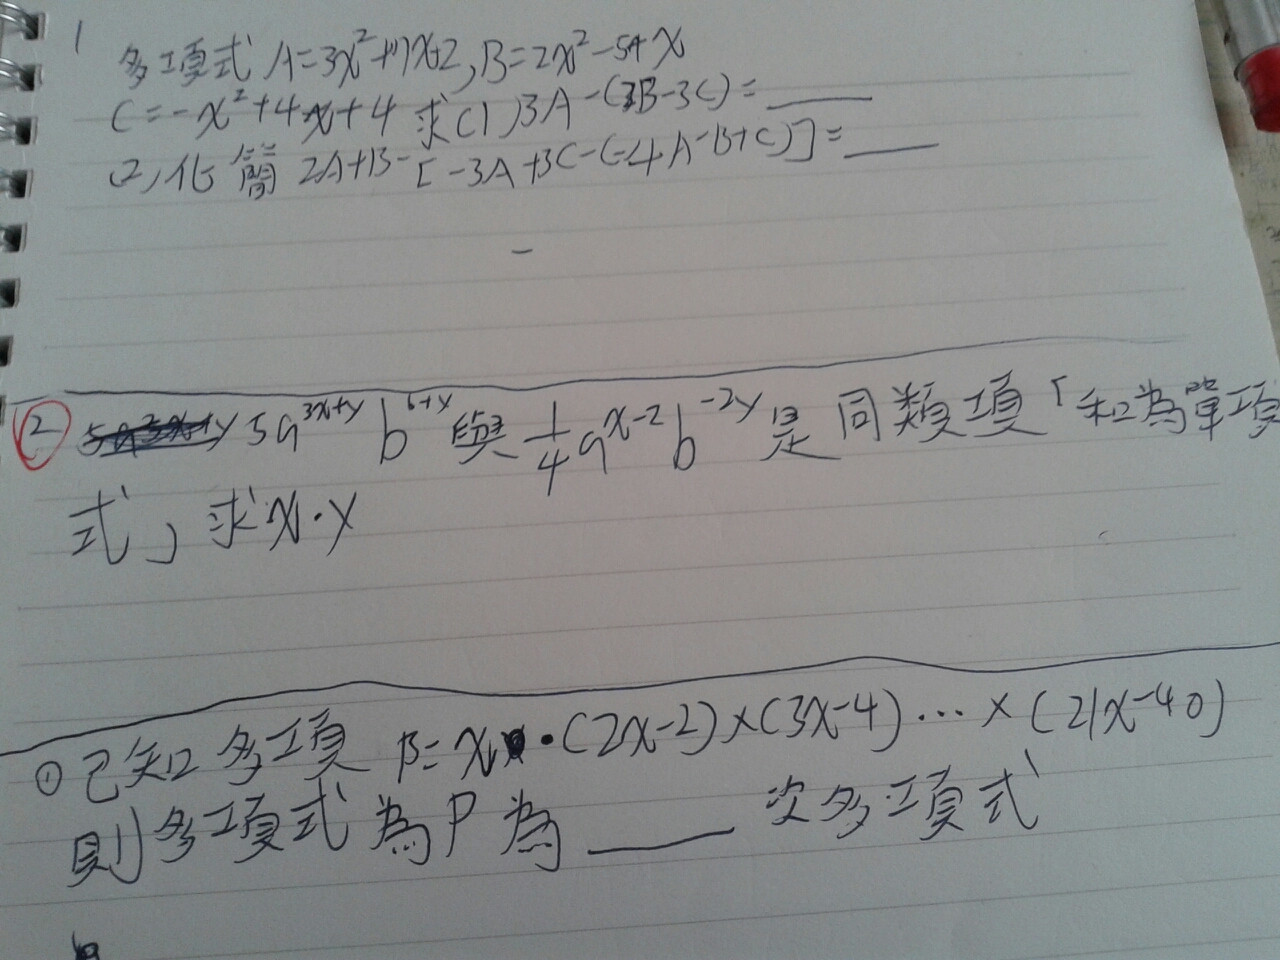 1
多項式 A=3x²+7x+2, B=2x²-5+x
C=-x²+4x+4 求(1)3A-(3B-3C)=____
(2)化簡 2A+B-[-3A+3C-(-4A-B+C)]=____
② 5a^{3x+y} b^{6+y} 與 \frac{1}{4}a^{x-2}b^{-2y} 是同類項「和為單項
式」求x·y
① 已知多項 P=x·(2x-2)×(3x-4)…×(21x-40)
則多項式為P為____次多項式